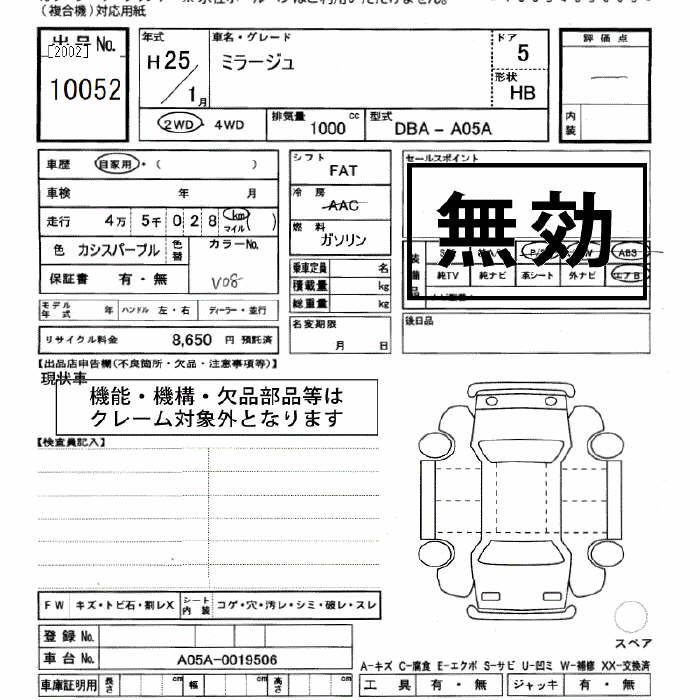 (複合機)対応用紙
出品No.
[2002]
10052
年式
H25/1月
車名・グレード
ミラージュ
ドア
5
形状
HB
評価点
内装
2WD・4WD
排気量 1000 cc
型式 DBA - A05A
車歴 自家用・( )
車検 年 月
走行 4万 5千 0 2 8 km マイル( )
色 カシスパープル 色替 カラーNo.
V08-
保証書 有・無
シフト FAT
冷房 AAC
燃料 ガソリン
乗車定員 名
積載量 kg
総重量 kg
セールスポイント
無効
ABS
純TV 純ナビ 革シート 外ナビ エアB
モデル年式 年 ハンドル 左・右 ディーラー・並行
名変期限 月 日
後日品
リサイクル料金 8,650 円 預託済
【出品店申告欄(不良箇所・欠品・注意事項等)】
現状車
機能・機構・欠品部品等は
クレーム対象外となります
【検査員記入】
FW キズ・トビ石・割レX シート内装 コゲ・穴・汚レ・シミ・破レ・スレ
スペア
登録No.
車台No. A05A-0019506
A-キズ C-腐食 E-エクボ S-サビ U-凹ミ W-補修 XX-交換済
車庫証明用 長さ cm 幅 cm 高さ cm 工具 有・無 ジャッキ 有・無